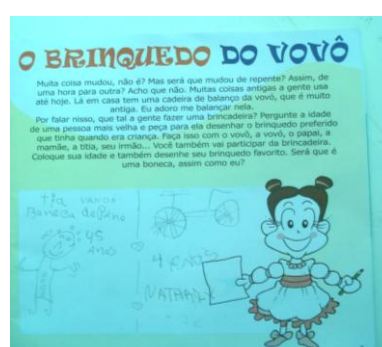 O BRINQUEDO DO VOVÔ
Muita coisa mudou, não é? Mas será que mudou de repente? Assim, de
uma hora para outra? Acho que não. Muitas coisas antigas a gente usa
até hoje. Lá em casa tem uma cadeira de balanço da vovó, que é muito
antiga. Eu adoro me balançar nela.
Por falar nisso, que tal a gente fazer uma brincadeira? Pergunte a idade
de uma pessoa mais velha e peça para ela desenhar o brinquedo preferido
que tinha quando era criança. Faça isso com o vovô, a vovó, o papai, a
mamãe, a titia, seu irmão... Você também vai participar da brincadeira.
Coloque sua idade e também desenhe seu brinquedo favorito. Será que é
uma boneca, assim como eu?
tia
Boneca de Pano
45
Anos
4